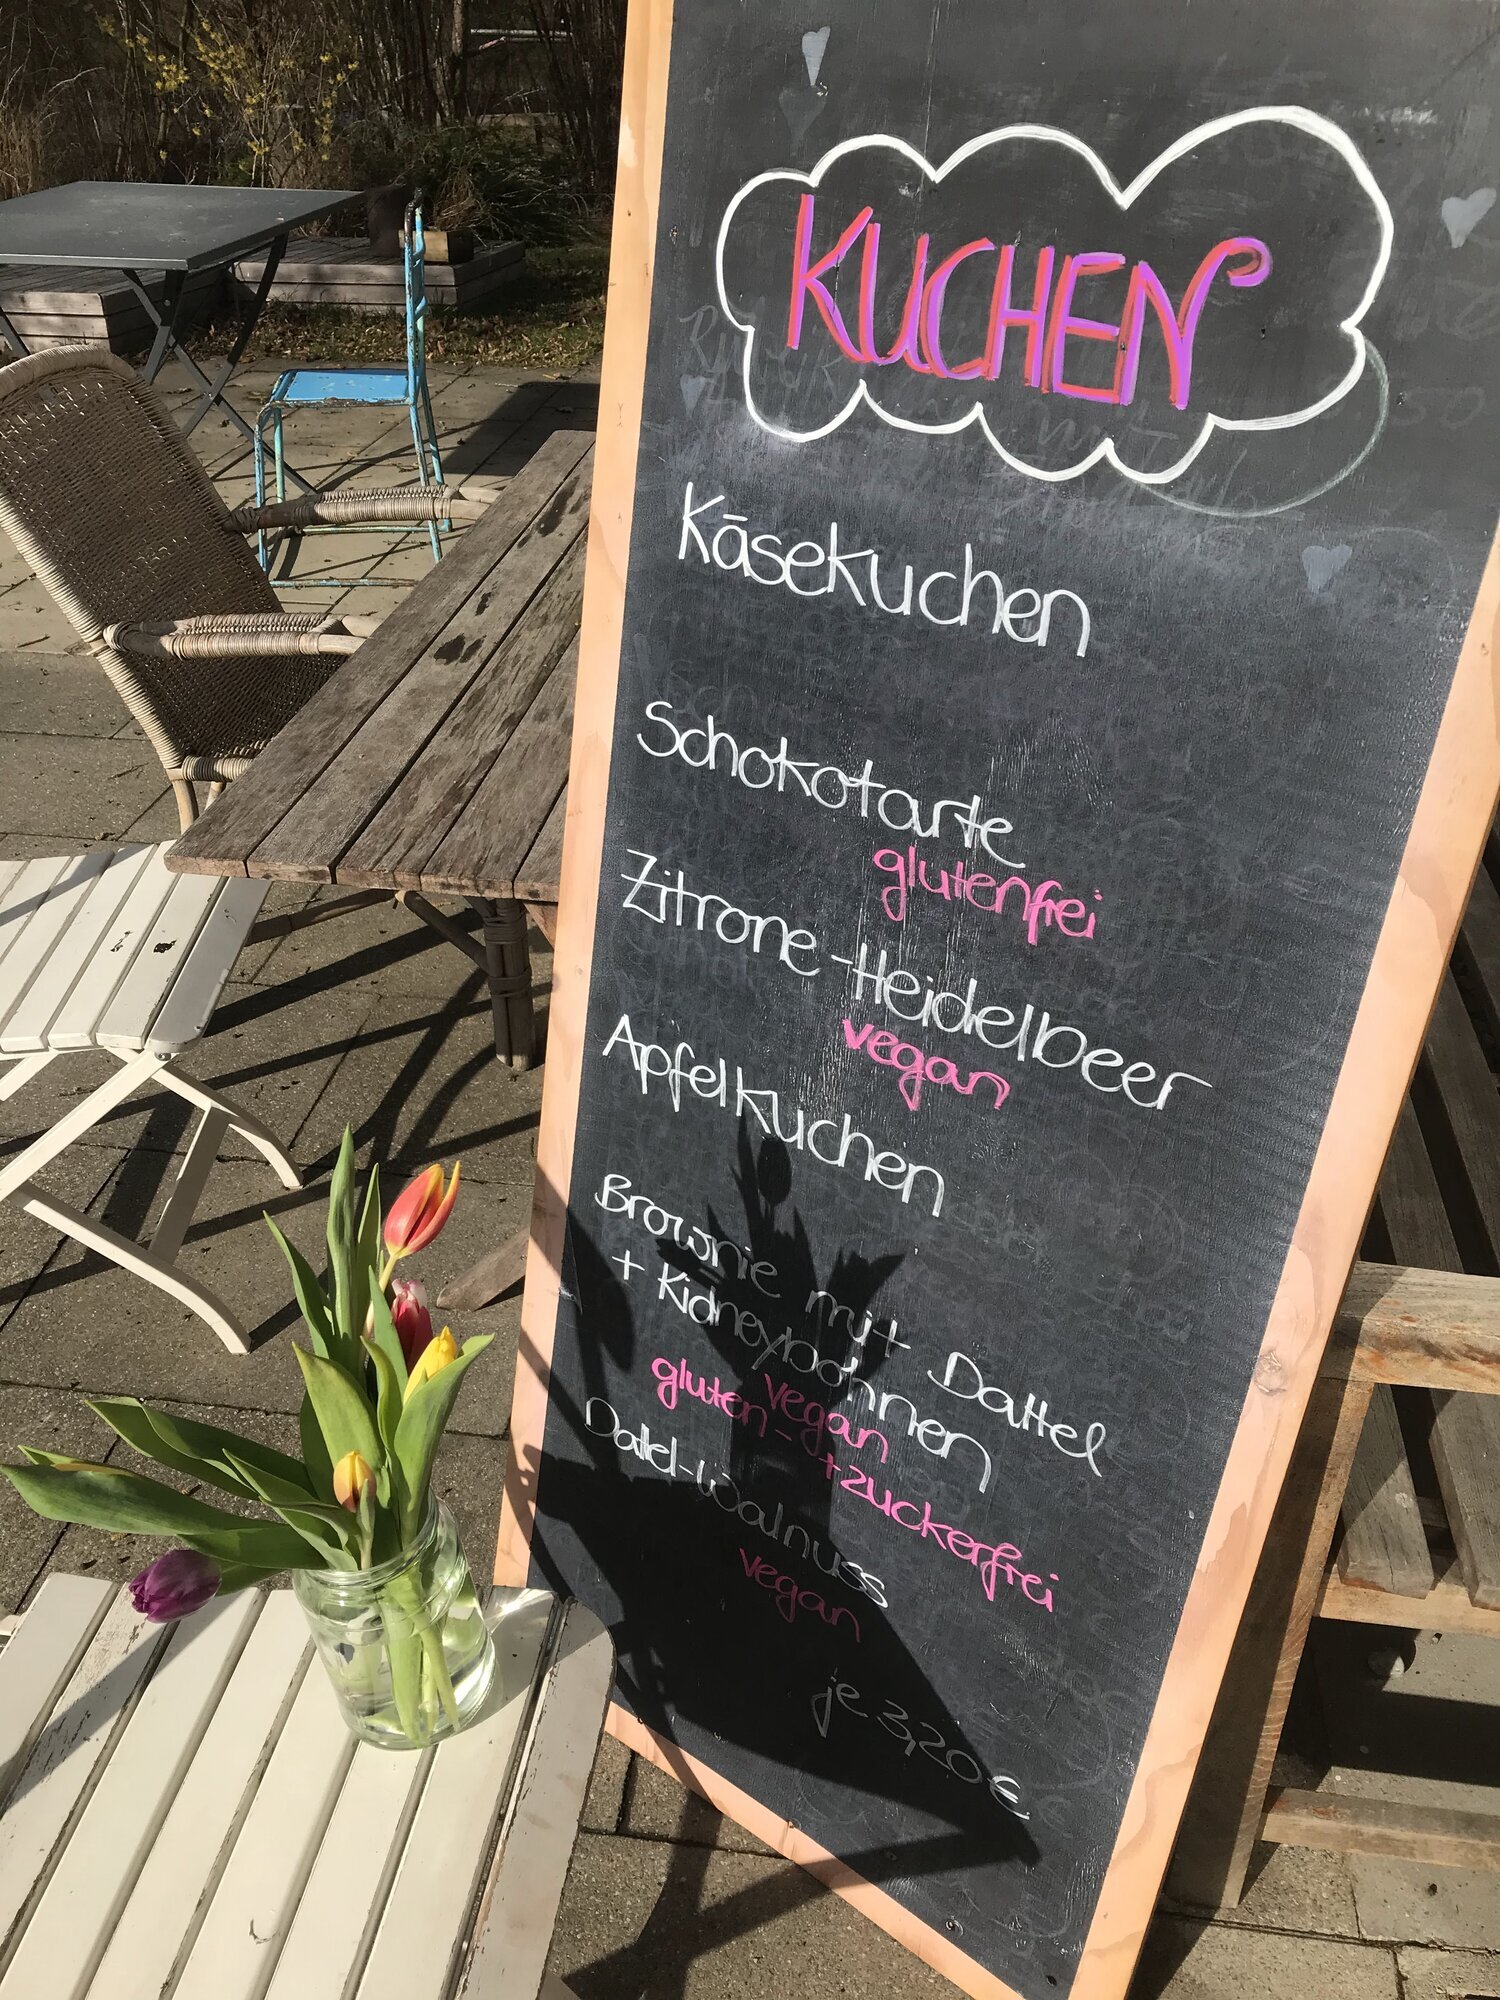 KUCHEN
Käsekuchen
Schokotarte
glutenfrei
Zitrone-Heidelbeer
vegan
Apfelkuchen
Brownie mit Dattel
+ Kidneybohnen
vegan
gluten- + zuckerfrei
Dattel-Walnuss
vegan
je 3,20 €